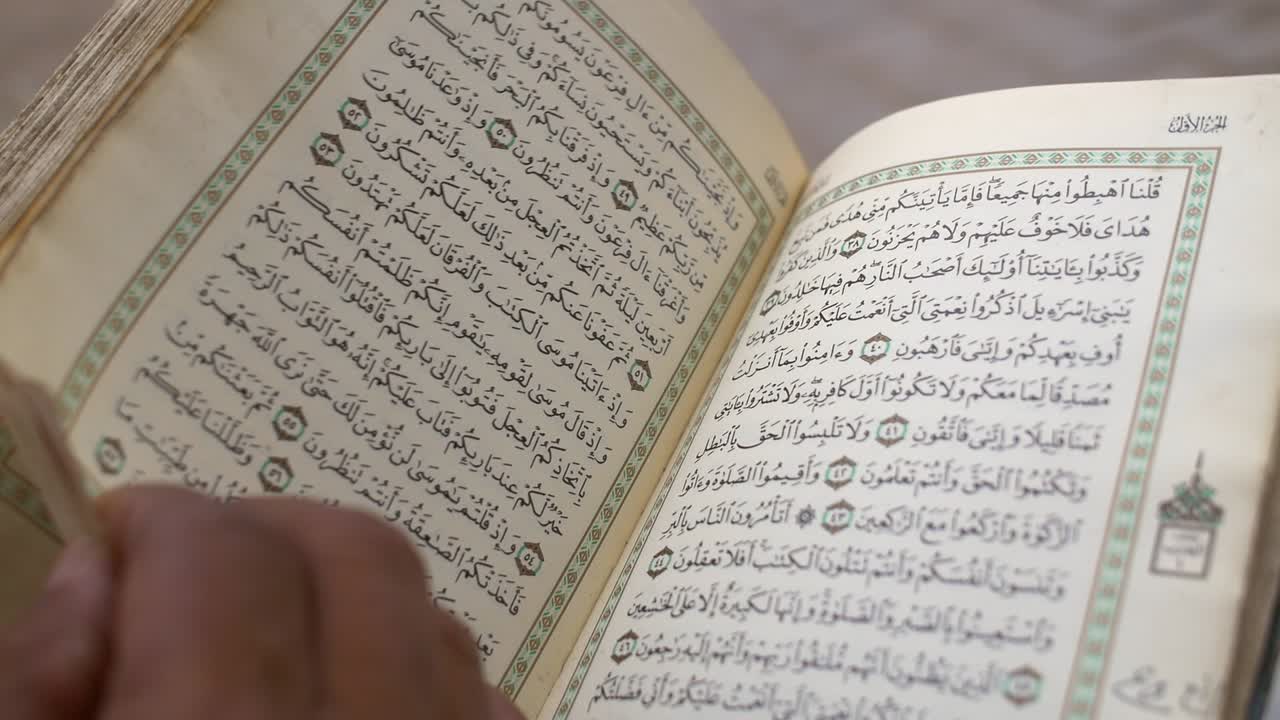 الجزء الأول
قُلْنَا ٱهْبِطُوا۟ مِنْهَا جَمِيعًا ۖ فَإِمَّا يَأْتِيَنَّكُم مِّنِّى هُدًى فَمَن تَبِعَ
هُدَاىَ فَلَا خَوْفٌ عَلَيْهِمْ وَلَا هُمْ يَحْزَنُونَ ٣٨ وَٱلَّذِينَ كَفَرُوا۟
وَكَذَّبُوا۟ بِـَٔايَـٰتِنَآ أُو۟لَـٰٓئِكَ أَصْحَـٰبُ ٱلنَّارِ ۖ هُمْ فِيهَا خَـٰلِدُونَ ٣٩
يَـٰبَنِىٓ إِسْرَٰٓءِيلَ ٱذْكُرُوا۟ نِعْمَتِىَ ٱلَّتِىٓ أَنْعَمْتُ عَلَيْكُمْ وَأَوْفُوا۟ بِعَهْدِىٓ
أُوفِ بِعَهْدِكُمْ وَإِيَّـٰىَ فَٱرْهَبُونِ ٤٠ وَءَامِنُوا۟ بِمَآ أَنزَلْتُ
مُصَدِّقًا لِّمَا مَعَكُمْ وَلَا تَكُونُوٓا۟ أَوَّلَ كَافِرٍۭ بِهِۦ ۖ وَلَا تَشْتَرُوا۟ بِـَٔايَـٰتِى
ثَمَنًا قَلِيلًا وَإِيَّـٰىَ فَٱتَّقُونِ ٤١ وَلَا تَلْبِسُوا۟ ٱلْحَقَّ بِٱلْبَـٰطِلِ
وَتَكْتُمُوا۟ ٱلْحَقَّ وَأَنتُمْ تَعْلَمُونَ ٤٢ وَأَقِيمُوا۟ ٱلصَّلَوٰةَ وَءَاتُوا۟
ٱلزَّكَوٰةَ وَٱرْكَعُوا۟ مَعَ ٱلرَّٰكِعِينَ ٤٣ ۞ أَتَأْمُرُونَ ٱلنَّاسَ بِٱلْبِرِّ
وَتَنسَوْنَ أَنفُسَكُمْ وَأَنتُمْ تَتْلُونَ ٱلْكِتَـٰبَ ۚ أَفَلَا تَعْقِلُونَ ٤٤
وَٱسْتَعِينُوا۟ بِٱلصَّبْرِ وَٱلصَّلَوٰةِ ۚ وَإِنَّهَا لَكَبِيرَةٌ إِلَّا عَلَى ٱلْخَـٰشِعِينَ
٤٥ ٱلَّذِينَ يَظُنُّونَ أَنَّهُم مُّلَـٰقُوا۟ رَبِّهِمْ وَأَنَّهُمْ إِلَيْهِ رَٰجِعُونَ ٤٦
أَنْعَمْتُ عَلَيْكُمْ وَأَنِّى فَضَّلْتُكُمْ
الحزب
وَإِذْ نَجَّيْنَـٰكُم مِّنْ ءَالِ فِرْعَوْنَ يَسُومُونَكُمْ
يُذَبِّحُونَ أَبْنَآءَكُمْ وَيَسْتَحْيُونَ نِسَآءَكُمْ ۚ وَفِى ذَٰلِكُم
مِّن رَّبِّكُمْ عَظِيمٌ ٤٩ وَإِذْ فَرَقْنَا بِكُمُ ٱلْبَحْرَ فَأَنجَيْنَـٰكُمْ
وَأَغْرَقْنَآ ءَالَ فِرْعَوْنَ وَأَنتُمْ تَنظُرُونَ ٥٠ وَإِذْ وَٰعَدْنَا مُوسَىٰٓ
أَرْبَعِينَ لَيْلَةً ثُمَّ ٱتَّخَذْتُمُ ٱلْعِجْلَ مِنۢ بَعْدِهِۦ وَأَنتُمْ ظَـٰلِمُونَ
٥١ ثُمَّ عَفَوْنَا عَنكُم مِّنۢ بَعْدِ ذَٰلِكَ لَعَلَّكُمْ تَشْكُرُونَ ٥٢
وَإِذْ ءَاتَيْنَا مُوسَى ٱلْكِتَـٰبَ وَٱلْفُرْقَانَ لَعَلَّكُمْ تَهْتَدُونَ ٥٣
وَإِذْ قَالَ مُوسَىٰ لِقَوْمِهِۦ يَـٰقَوْمِ إِنَّكُمْ ظَلَمْتُمْ أَنفُسَكُم
بِٱتِّخَاذِكُمُ ٱلْعِجْلَ فَتُوبُوٓا۟ إِلَىٰ بَارِئِكُمْ فَٱقْتُلُوٓا۟ أَنفُسَكُمْ ذَٰلِكُمْ
خَيْرٌ لَّكُمْ عِندَ بَارِئِكُمْ فَتَابَ عَلَيْكُمْ ۚ إِنَّهُۥ هُوَ ٱلتَّوَّابُ ٱلرَّحِيمُ
٥٤ وَإِذْ قُلْتُمْ يَـٰمُوسَىٰ لَن نُّؤْمِنَ لَكَ حَتَّىٰ نَرَى ٱللَّهَ جَهْرَةً
فَأَخَذَتْكُمُ ٱلصَّـٰعِقَةُ وَأَنتُمْ تَنظُرُونَ ٥٥ ثُمَّ بَعَثْنَـٰكُم مِّنۢ
بَعْدِ ٥٦ وَظَلَّلْنَا عَلَيْكُمُ
طَيِّبَـٰتِ مَا